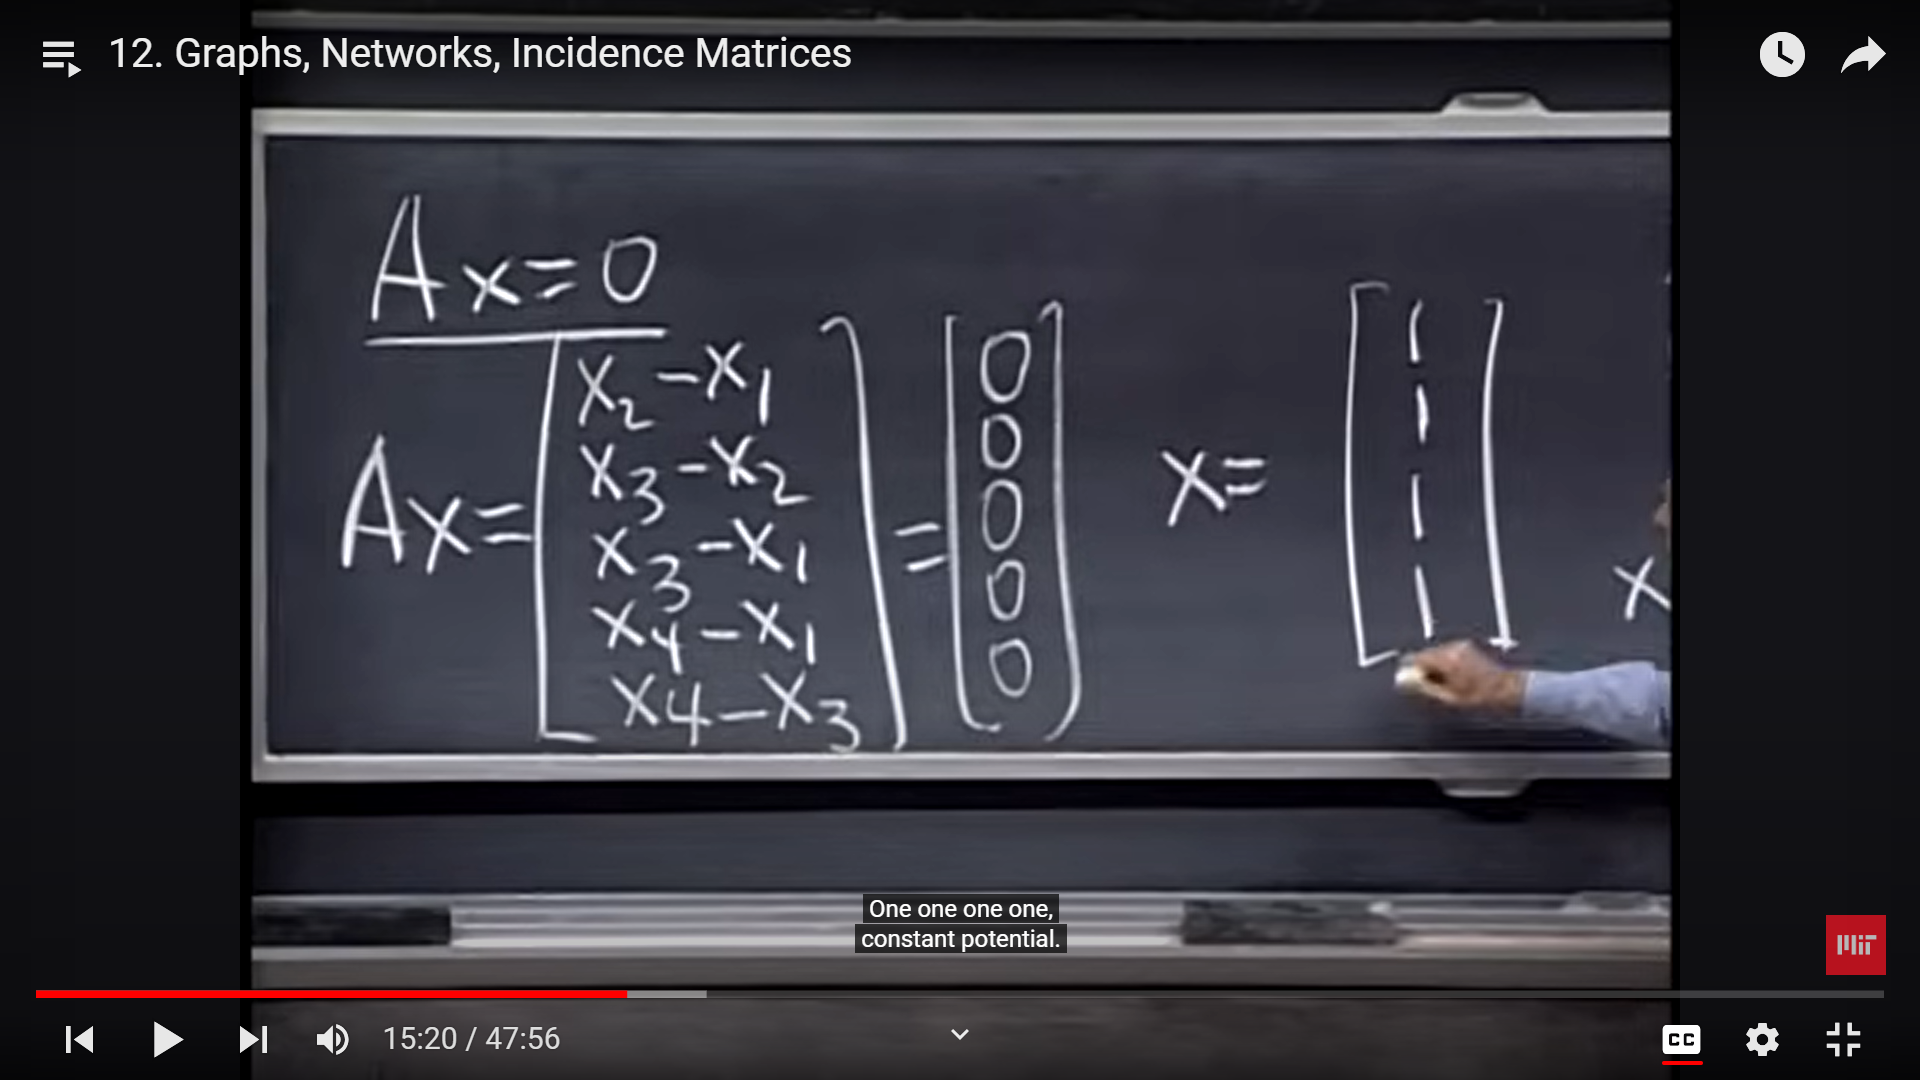 12. Graphs, Networks, Incidence Matrices
Ax=0
Ax= [ x2-x1
x3-x2
x3-x1
x4-x1
x4-x3 ] = [ 0
0
0
0
0 ]
x= [ 1
1
1
1 ]
x
One one one one,
constant potential.
MIT
15:20 / 47:56
CC